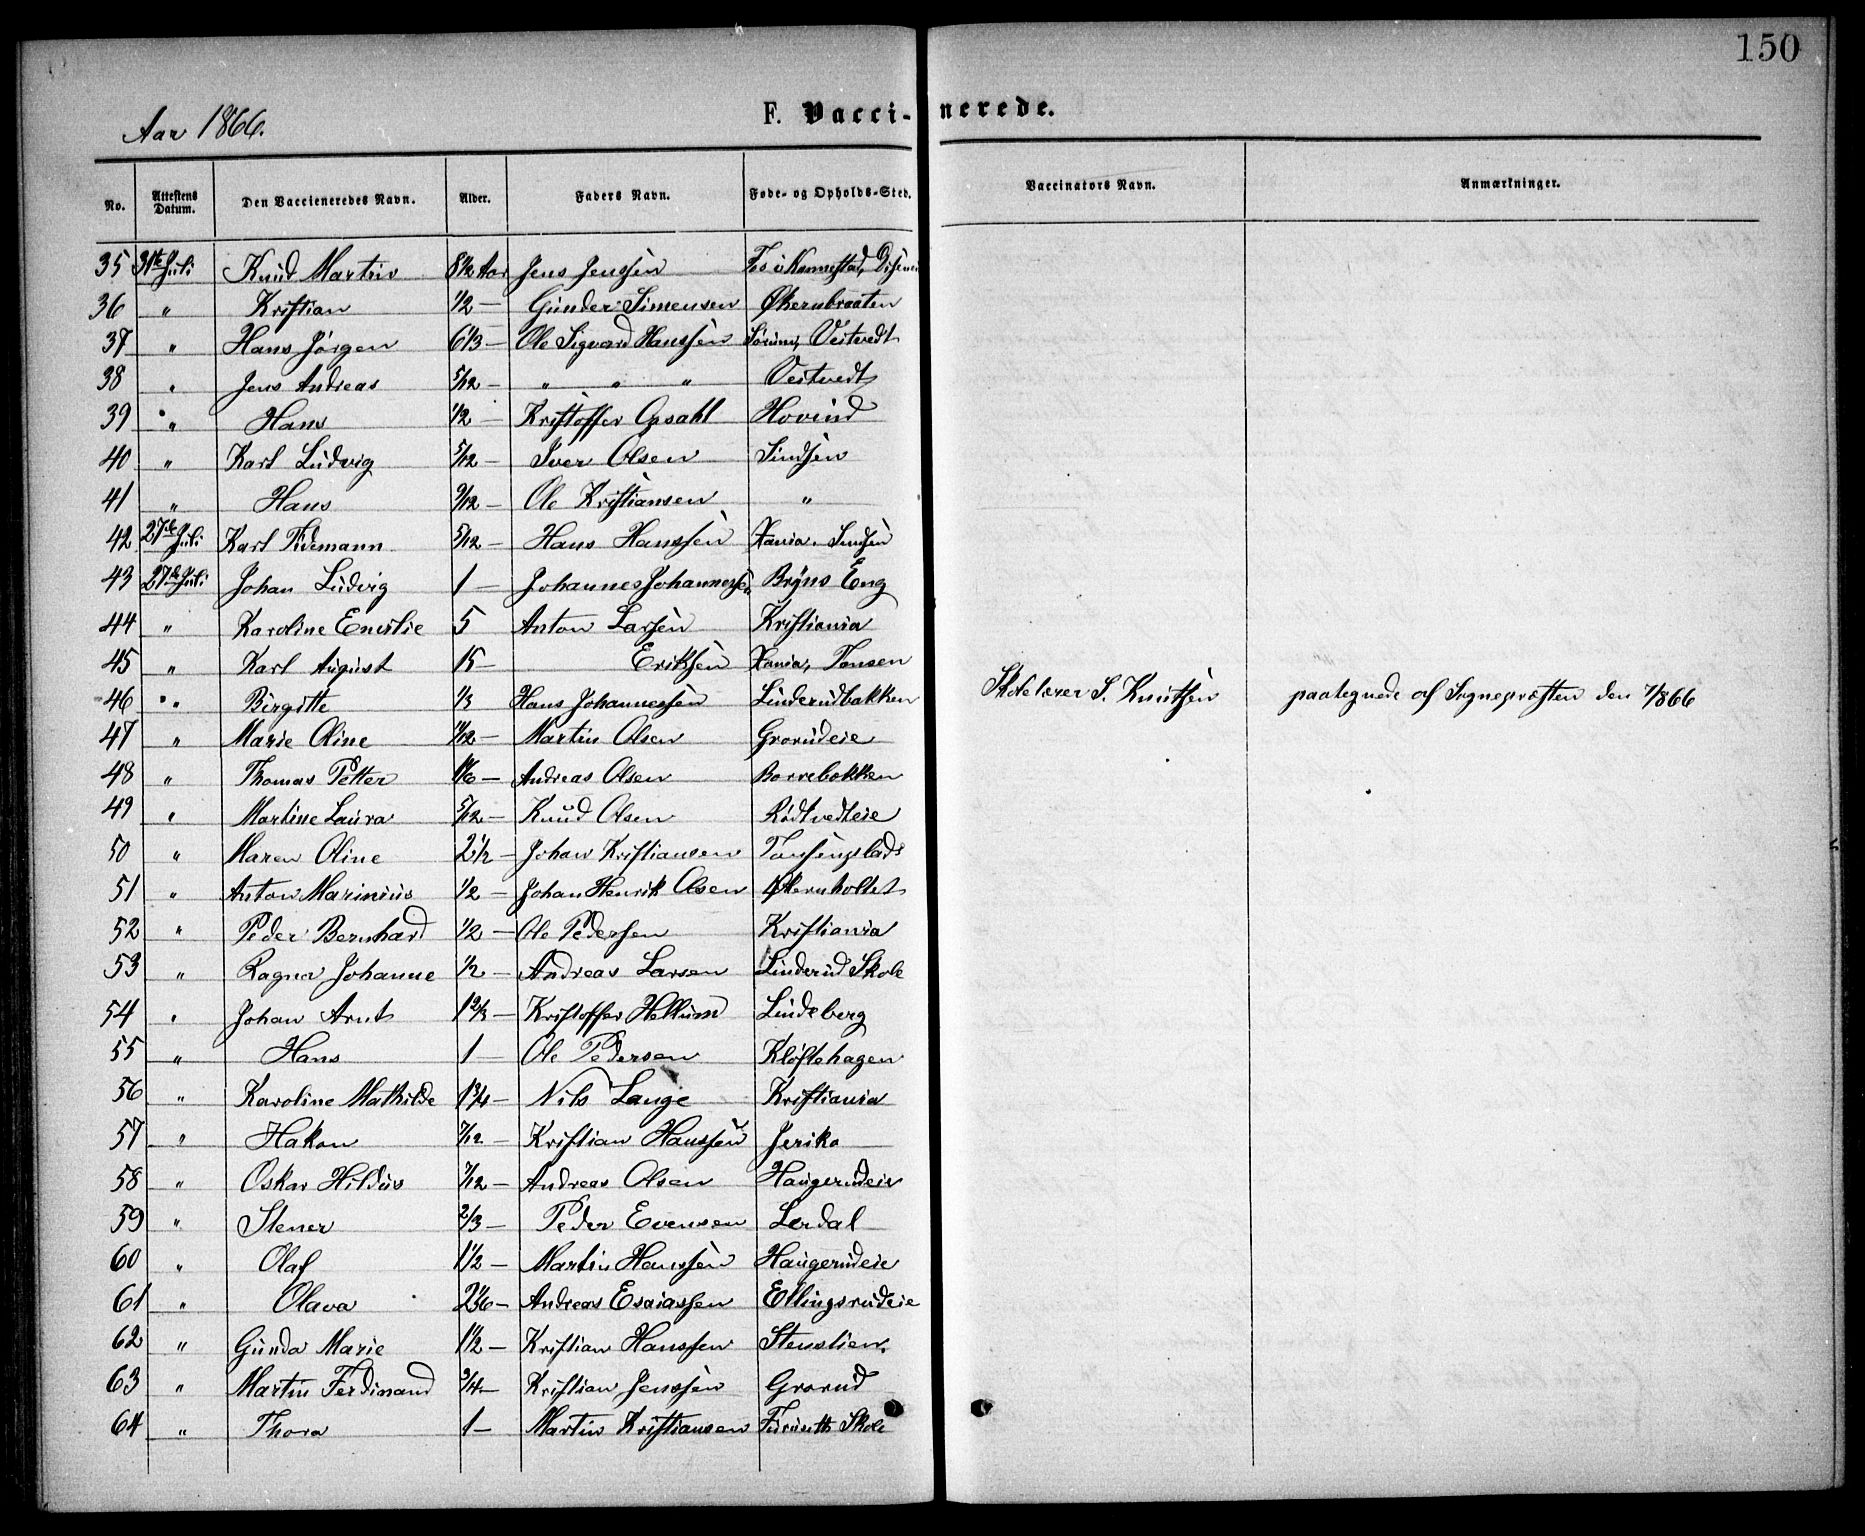 150
Aar 1866.
F. Vaccinerede.
No. Attestens Datum. Den Vaccieneredes Navn. Alder. Faders Navn. Føde- og Opholds-Sted. Vaccinators Navn. Anmærkninger.
35 31te Juli Knud Martin 8 1/2 Aar Jens Jenssen
36 " Kristian 1/2 — Gunder Simensen Økernbraaten
37 " Hans Jörgen 6 1/3 — Ole Sigvard Hanssen Sörum, Veitvedt
38 " Jens Andreas 5/12 — " " " Veitvedt
39 " Hans 1/2 — Kristoffer Opsahl Hovind
40 " Karl Ludvig 5/12 — Iver Olsen Sindsen
41 " Hans 9/12 — Ole Kristiansen "
42 27de Juli Karl Tidemann 5/12 — Hans Hanssen Xania. Sinsen
43 27de Juli Johan Ludvig 1 — Johannes Johannessen Bryns Eng
44 " Karoline Emilie 5 Anton Larsen Kristiania
45 " Karl August 15 — Eriksen Xania, Tonsen
46 " Birgitte 1/3 Hans Johannessen Linderudbakken Skolelærer S. Knutsen paategnede af Sognepræsten den 7/866
47 " Marie Oline 11/12 — Martin Olsen Grorudeie
48 " Thomas Petter 1 1/6 — Andreas Olsen Borrebakken
49 " Martine Laura 5/12 — Knud Olsen Rödtvedteie
50 " Maren Oline 2 1/2 — Johan Kristiansen Tonsenplads
51 " Anton Marinius 1/2 — Johan Henrik Olsen Økernholtet
52 " Peder Bernhard 1/2 — Ole Pedersen Kristiania
53 " Ragna Johanne 1/2 — Andreas Larsen Linderud Skole
54 " Johan Arnt 1 2/3 — Kristoffer Hellum Lindeberg
55 " Hans 1 — Ole Pedersen Klöftehagen
56 " Karoline Mathilde 1 3/4 — Nils Lange Kristiania
57 " Hakon 7/12 — Kristian Hanssen Jeriko
58 " Oskar Hildus 7/12 — Andreas Olsen Haugerudeie
59 " Stener 2/3 — Peder Evensen Lerdal
60 " Olaf 1 1/2 — Martin Hanssen Haugerudeie
61 " Olava 2 1/6 — Andreas Esaiassen Ellingsrudeie
62 " Gunda Marie 1 1/2 — Kristian Hanssen Stenslien.
63 " Martin Ferdinand 3/4 — Kristian Jenssen Grorud
64 " Thora 1 — Martin Kristiansen Furuseth Skole